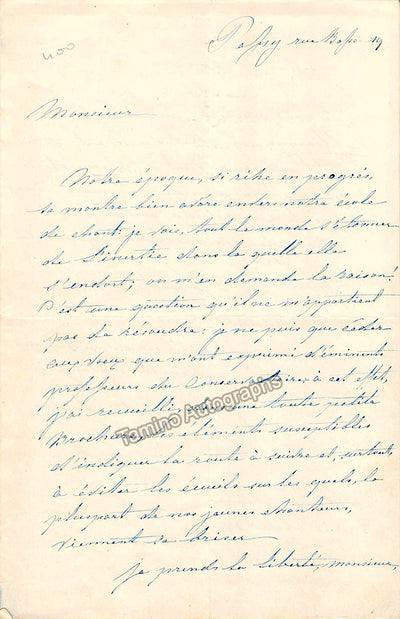 400
Passy rue Basse 19
Monsieur
Notre époque, si riche en progrès,
se montre bien avare envers notre école
de chant; je vois, tout le monde s'étonner
de l'inertie dans la quelle elle
s'endort, on m'en demande la raison!
C'est une question qu'il ne m'appartient
pas de résoudre; je ne puis que céder
aux vœux que m'ont exprimé d'éminents
professeurs du Conservatoire, à cet effet,
j'ai recueilli, dans une toute petite
Brochure, des eléments susceptibles
d'indiquer la route à suivre et, surtout,
à éviter les écueils sur les quels, la
pluspart de nos jeunes chanteurs,
viennent se briser
je prends la liberté, monsieur,
Tamino Autographs